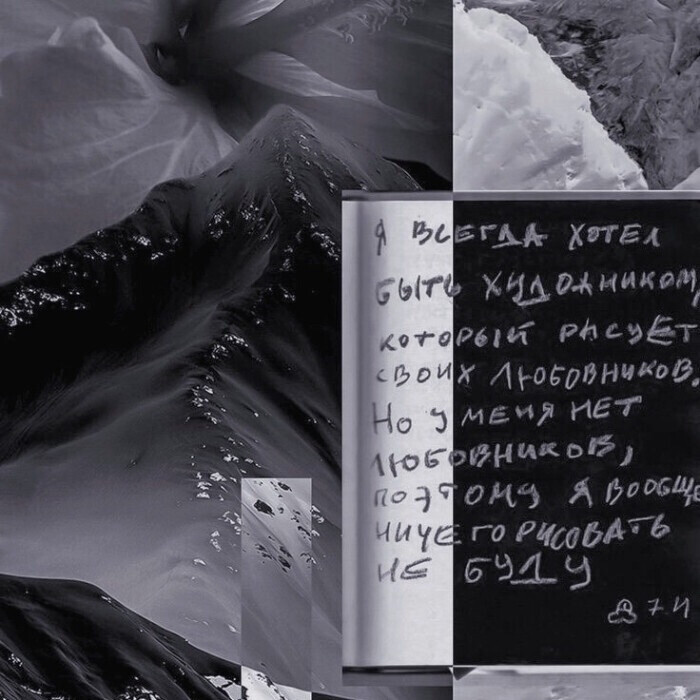 Я ВСЕГДА ХОТЕЛ
БЫТЬ ХУДОЖНИКОМ,
КОТОРЫЙ РИСУЕТ
СВОИХ ЛЮБОВНИКОВ.
НО У МЕНЯ НЕТ
ЛЮБОВНИКОВ,
ПОЭТОМУ Я ВООБЩЕ
НИЧЕГО РИСОВАТЬ
НЕ БУДУ